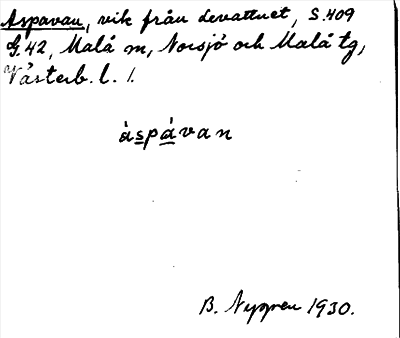 Aspavan, vik från Levattnet, S.409
G.42, Malå m, Norsjö och Malå tg,
Västerb. l. 1.
àspávan
B. Nygren 1930.